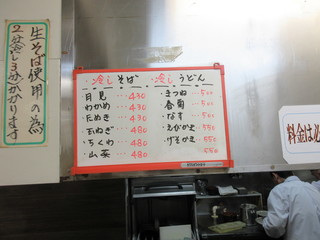 生そば使用の為
2〜3分かかります
冷しそば 冷しうどん
月見……430
わかめ…430
たぬき…430
玉ねぎ…480
ちくわ…480
山菜……480
きつね…500
春菊……500
なす……500
えびかき…550
げそかき…550
550
料金は必